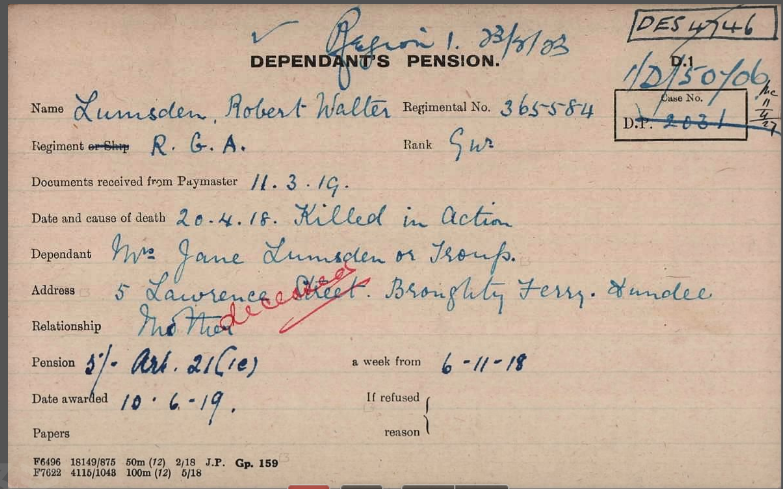 DES 4746
Region 1. 23/5/23
DEPENDANT'S PENSION.
D.1
1/D/50/06
Case No.
D.P. 2031
11
4
27
Name Lumsden, Robert Walter Regimental No. 365584
Regiment or Ship R. G. A. Rank Gnr
Documents received from Paymaster 11.3.19.
Date and cause of death 20.4.18. Killed in Action
Dependant Mrs Jane Lumsden or Troup.
Address 5 Lawrence Street. Broughty Ferry. Dundee
deceased
Relationship Mother
Pension 5/- Art. 21(1c) a week from 6-11-18
Date awarded 10.6.19. If refused
Papers reason
F6496 18149/875 50m (12) 2/18 J.P. Gp. 159
F7622 4115/1043 100m (12) 5/18